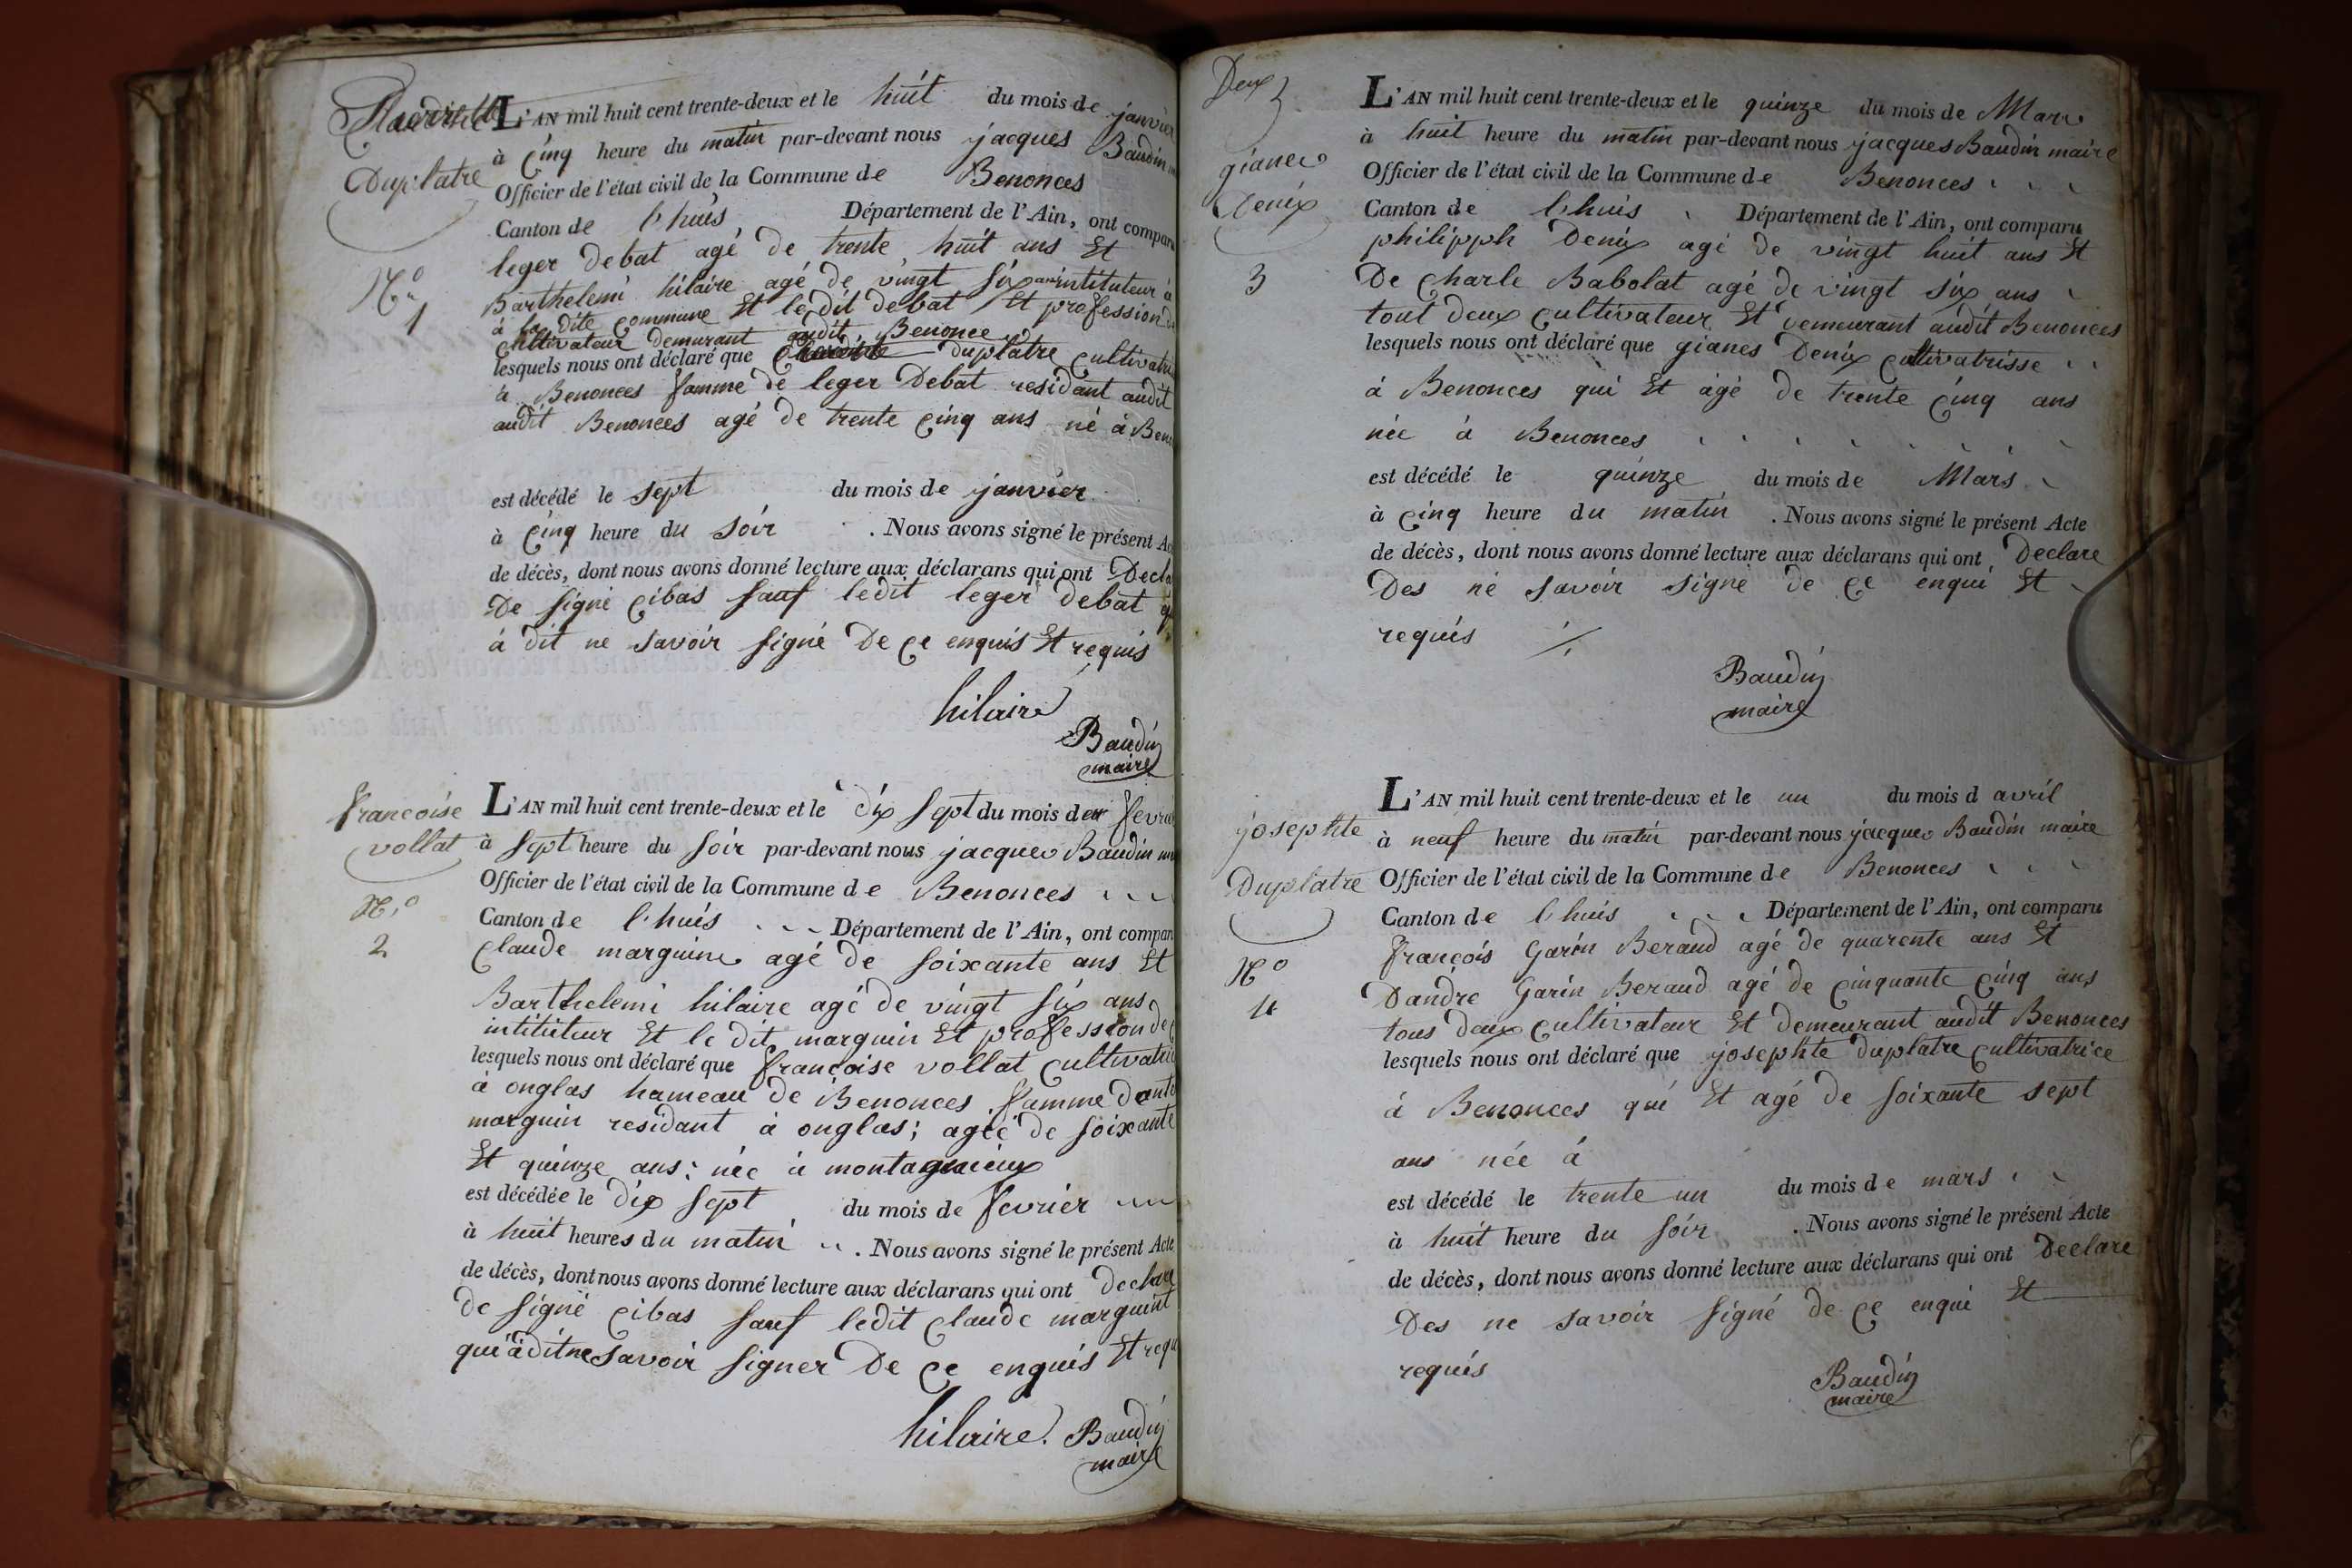 Duplatre
N.o
1
L'AN mil huit cent trente-deux et le huit du mois de janvier
à cinq heure du matin par-devant nous jacques Baudin
Officier de l'état civil de la Commune de Benonces
Canton de l'huis Département de l'Ain, ont comparu
leger debat agé de trente huit ans Et
Barthelemi hilaire agé de vingt six ans intituteur à
à la dite commune Et le dit debat Et profession de
cultivateur demurant audit Benonce
lesquels nous ont déclaré que duplatre cultivatri
à Benonces famme de leger Debat residant audit
audit Benonces agé de trente cinq ans né à Ben
est décédé le sept du mois de janvier
à cinq heure du soir . Nous avons signé le présent Ac
de décès, dont nous avons donné lecture aux déclarans qui ont Decla
De signé cibas sauf ledit leger debat q
à dit ne savoir signé De ce enquis Et requis
hilaire
Baudin
maire
françoise
vollat
N.o
2
L'AN mil huit cent trente-deux et le dix sept du mois de fevrier
à sept heure du soir par-devant nous jacques Baudin m
Officier de l'état civil de la Commune de Benonces
Canton de l'huis Département de l'Ain, ont compar
Claude marguine agé de soixante ans Et
Barthelemi hilaire agé de vingt six ans
intituteur Et le dit marguin Et profession de
lesquels nous ont déclaré que françoise vollat cultivatric
à onglas hameau de Benonces famme danto
marguin residant à onglas; agéé de soixante
Et quinze ans: née à montagnieux
est décédée le dix sept du mois de fevrier
à huit heures du matin . Nous avons signé le présent Acte
de décès, dont nous avons donné lecture aux déclarans qui ont declare
de signé cibas sauf ledit claude marguint
qui à dit ne savoir signer De ce enquis Et requ
hilaire. Baudin
maire
Deux
gianes
Denix
3
L'AN mil huit cent trente-deux et le quinze du mois de Mars
à huit heure du matin par-devant nous jacques Baudin maire
Officier de l'état civil de la Commune de Benonces
Canton de l'huis Département de l'Ain, ont comparu
philipph Denix agé de vingt huit ans Et
De Charle Babolat agé de vingt six ans
tout deux cultivateur Et demeurant audit Benonces
lesquels nous ont déclaré que gianes Denix cultivatrisse
à Benonces qui Et agé de trente cinq ans
née à Benonces
est décédé le quinze du mois de Mars
à cinq heure du matin . Nous avons signé le présent Acte
de décès, dont nous avons donné lecture aux déclarans qui ont Declare
Des né savoir signé de ce enqui Et
requis
Baudin
maire
josephte
Duplatre
N.o
4
L'AN mil huit cent trente-deux et le un du mois d avril
à neuf heure du matin par-devant nous jacques Baudin maire
Officier de l'état civil de la Commune de Benonces
Canton de l'huis Département de l'Ain, ont comparu
françois Garin Beraud agé de quarente ans Et
Dandre Garin Beraud agé de cinquante cinq ans
tous deux cultivateur Et demeurant audit Benonces
lesquels nous ont déclaré que josephte duplatre cultivatrice
à Benonces qui Et agé de soixante sept
ans née á
est décédé le trente un du mois de mars
à huit heure du soir . Nous avons signé le présent Acte
de décès, dont nous avons donné lecture aux déclarans qui ont Declare
Des ne savoir signé de ce enqui Et
requis
Baudin
maire